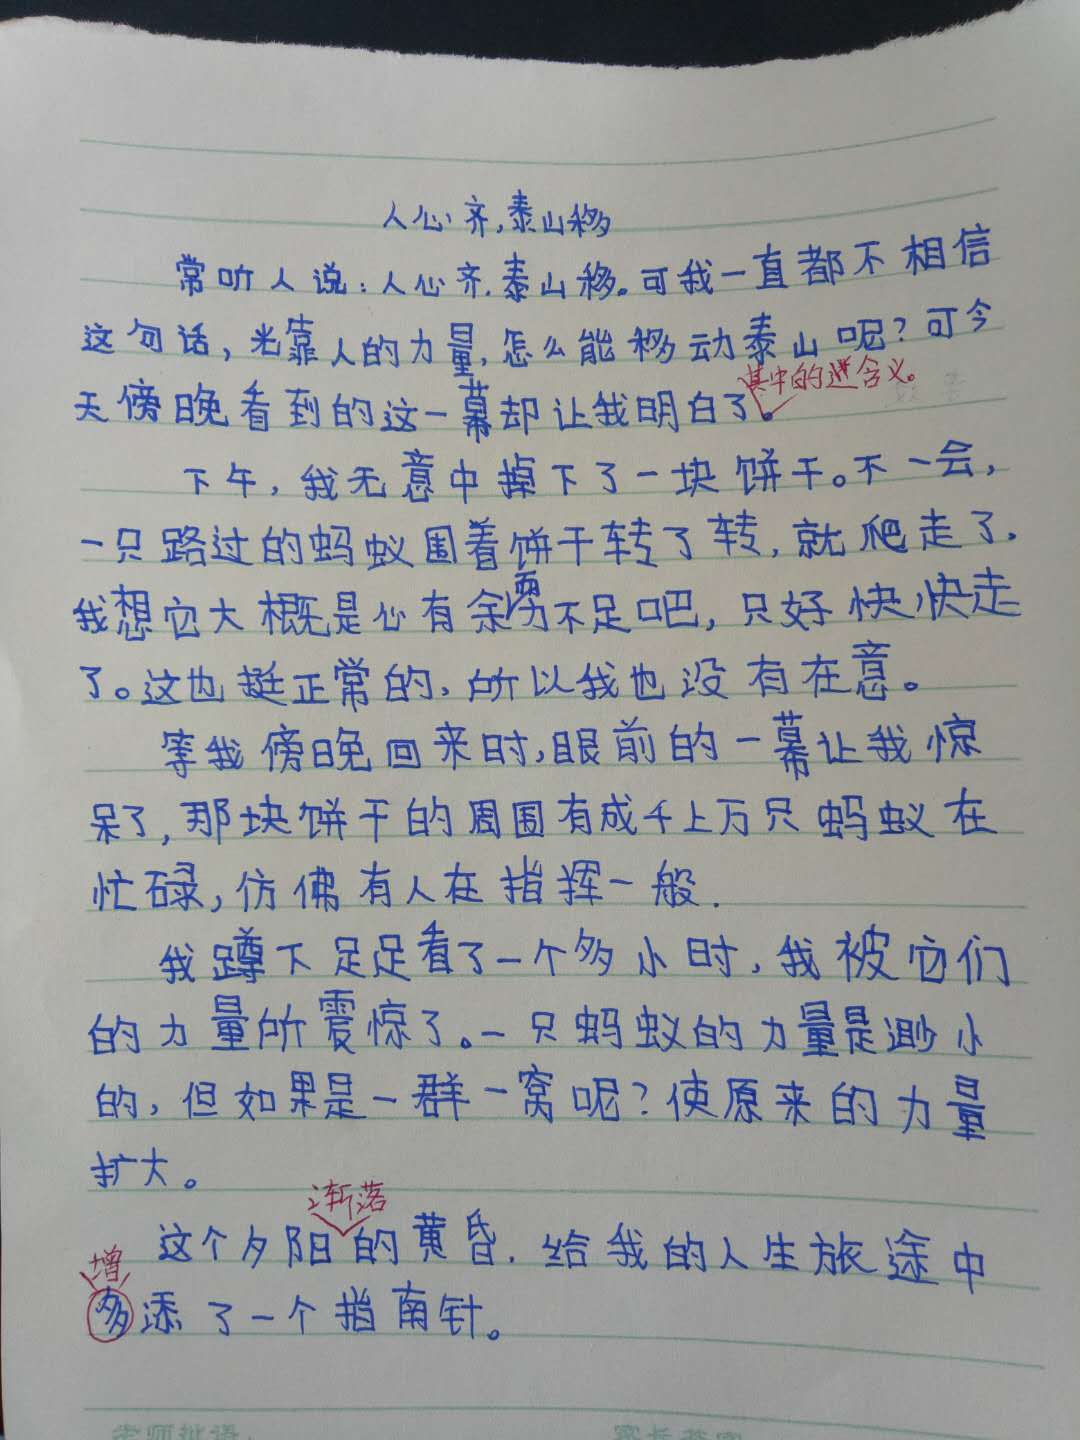 人心齐,泰山移
常听人说:人心齐.泰山移。可我一直都不相信
这句话,光靠人的力量,怎么能移动泰山呢?可今
其中的含义。
天傍晚看到的这一幕却让我明白了。
下午,我无意中掉下了一块饼干。不一会,
一只路过的蚂蚁围着饼干转了转,就爬走了.
我想它大概是心有余而力不足吧,只好快快走
了。这也挺正常的,所以我也没有在意。
等我傍晚回来时,眼前的一幕让我惊
呆了,那块饼干的周围有成千上万只蚂蚁在
忙碌,仿佛有人在指挥一般.
我蹲下足足看了一个多小时,我被它们
的力量所震惊了。一只蚂蚁的力量是渺小
的,但如果是一群一窝呢?使原来的力量
扩大。
渐落
这个夕阳的黄昏.给我的人生旅途中
增
多添了一个指南针。
老师批语: